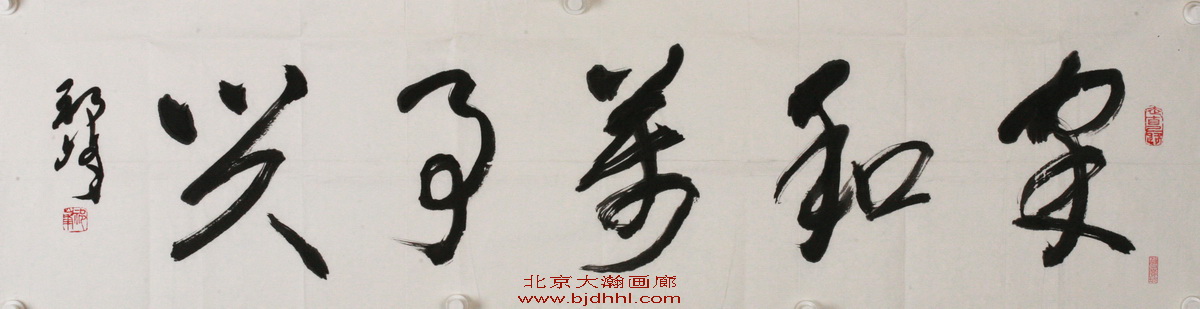 家和萬事興
北京大瀚画廊
www.bjdhhl.com